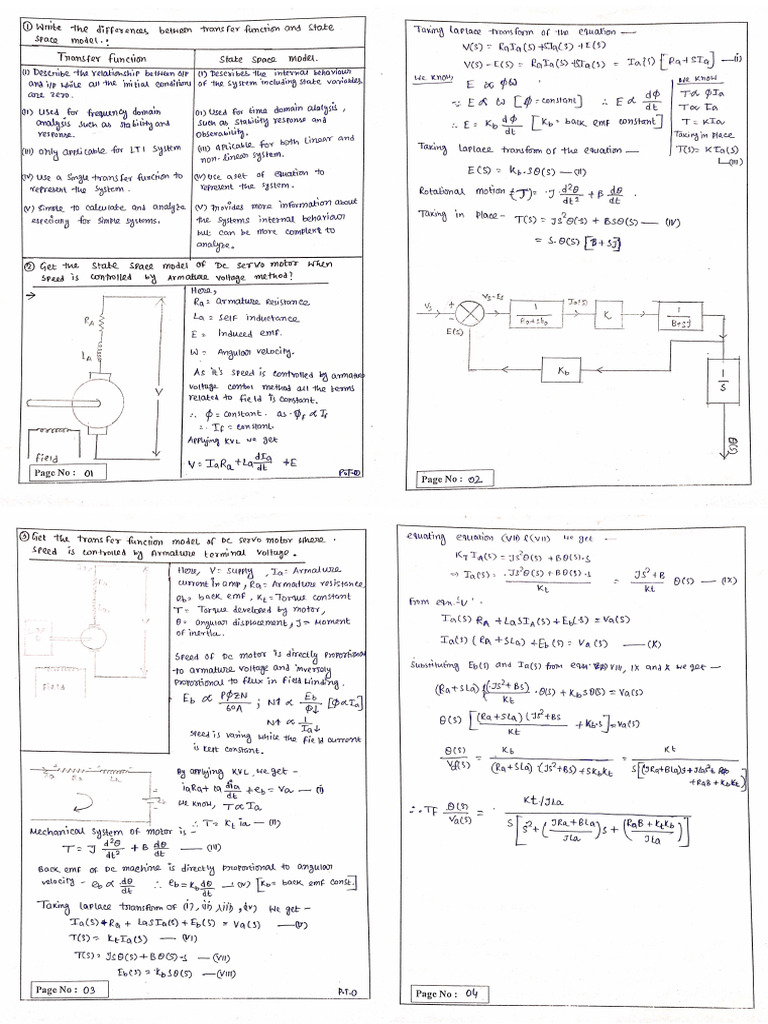 ① Write the differences between transfer function and State
Space model.:
Transfer function
(I) Describe the relationship between O/P
and I/P while all the initial conditions
are zero.
(II) Used for frequency domain
analysis such as stability and
response.
(III) Only applicable for LTI System
(IV) Use a Single transfer function to
represent the system.
(V) Simple to calculate and analyze
especially for simple systems.
State Space model.
(I) Describes the internal behaviour
of the system including state variables.
(II) Used for time domain analysis,
such as stability response and
observability.
(III) Aplicable for both linear and
non-linear system.
(IV) Use a set of equation to
represent the system.
(V) Provides more information about
the systems internal behaviour
but can be more complex to
analyze.
② Get the State Space model of DC servo motor when
Speed is controlled by Armature voltage method?
→
RA
LA
V
field
Here,
Ra = armature Resistance
La = self inductance
E = Induced emf.
W = Angular velocity.
As it's speed is controlled by armature
voltage control method all the terms
related to field is constant.
∴ Φ = constant. as Φf ∝ If
∴ If = constant
Applying KVL we get
V = IaRa + La dIa/dt + E
Page No : 01
P.T.O
Taking laplace transform of the equation —
V(S) = RaIa(S) + SIa(S) + E(S)
V(S) - E(S) = RaIa(S) + SIa(S) = Ia(S) [Ra + SIa] —(I)
We know
E ∝ ΦW
∵ E ∝ W [Φ = constant] ∴ E ∝ dΦ/dt
∴ E = Kb dΦ/dt [Kb = back emf constant]
We know
T ∝ ΦIa
T ∝ Ia
T = KIa
Taking in place
T(S) = KIa(S)
(III)
Taking laplace transform of the equation —
E(S) = Kb.Sθ(S) —(II)
Rotational motion (T) = J d²θ/dt² + B dθ/dt
Taking in place - T(S) = JS²θ(S) + BSθ(S) — (IV)
= S.θ(S) [B + SJ]
Vs
+
-
E(S)
Vs-Es
1/Ra+SLa
Ia(S)
K
1/B+SJ
Kb
1/S
θ(S)
Page No : 02
③ Get the transfer function model of DC servo motor where
speed is controlled by Armature terminal voltage.
Field
Here, V = supply, Ia = Armature
current in amp, Ra = Armature resistance
eb = back emf, Kt = Torque constant
T = Torque developed by motor,
θ = angular displacement, J = Moment
of inertia.
Speed of DC motor is directly proportional
to armature voltage and inversely
proportional to flux in field winding.
Eb ∝ PΦZN/60A ; N↑ ∝ Eb/Φ↓ [Φ ∝ Ia]
N↑ ∝ 1/Ia↓
Speed is varing while the field current
is kept constant.
By applying KVL, we get —
iaRa + la dia/dt + eb = Va —(I)
We know, T ∝ Ia
∴ T = Kt ia —(II)
Mechanical System of motor is -
T = J d²θ/dt² + B dθ/dt —(III)
Back emf of DC machine is directly proportional to angular
velocity - eb ∝ dθ/dt ∴ eb = Kb dθ/dt —(IV) [Kb = back emf const.]
Taking laplace transform of (i), (ii), (iii), (iv) We get —
Ia(S)*Ra + LaSIa(S) + Eb(S) = Va(S) —(V)
T(S) = KtIa(S) —(VI)
T(S) = JSθ(S) + Bθ(S).S —(VII)
Eb(S) = KbSθ(S) —(VIII)
Page No : 03
P.T.O
equating equation (VI) & (VII) We get —
KTIA(S) = JS²θ(S) + Bθ(S).S
⇒ Ia(S) = JS²θ(S) + Bθ(S).S/Kt = JS²+B/Kt θ(S) —(IX)
From eqn. 'V'
Ia(S) RA + LaSIA(S) + Eb(S) = Va(S)
Ia(S) (RA + SLa) + Eb(S) = Va(S) —(X)
Substituting Eb(S) and Ia(S) from eqn. VIII, IX and X we get —
(Ra+SLa) (JS²+BS)/Kt .θ(S) + KbSθ(S) = Va(S)
θ(S) [(Ra+SLa)(JS²+BS/Kt + Kb.S] = Va(S)
θ(S)/Va(S) = Kt/(Ra+SLa).(JS²+BS)+SKbKt = Kt/S[(JRa+BLa)S+JLaS²+RaB+KbKt]
∴ TF θ(S)/Va(S) = Kt/JLa / S[S²+(JRa+BLa/JLa)S+(RaB+KtKb/JLa)]
Page No : 04